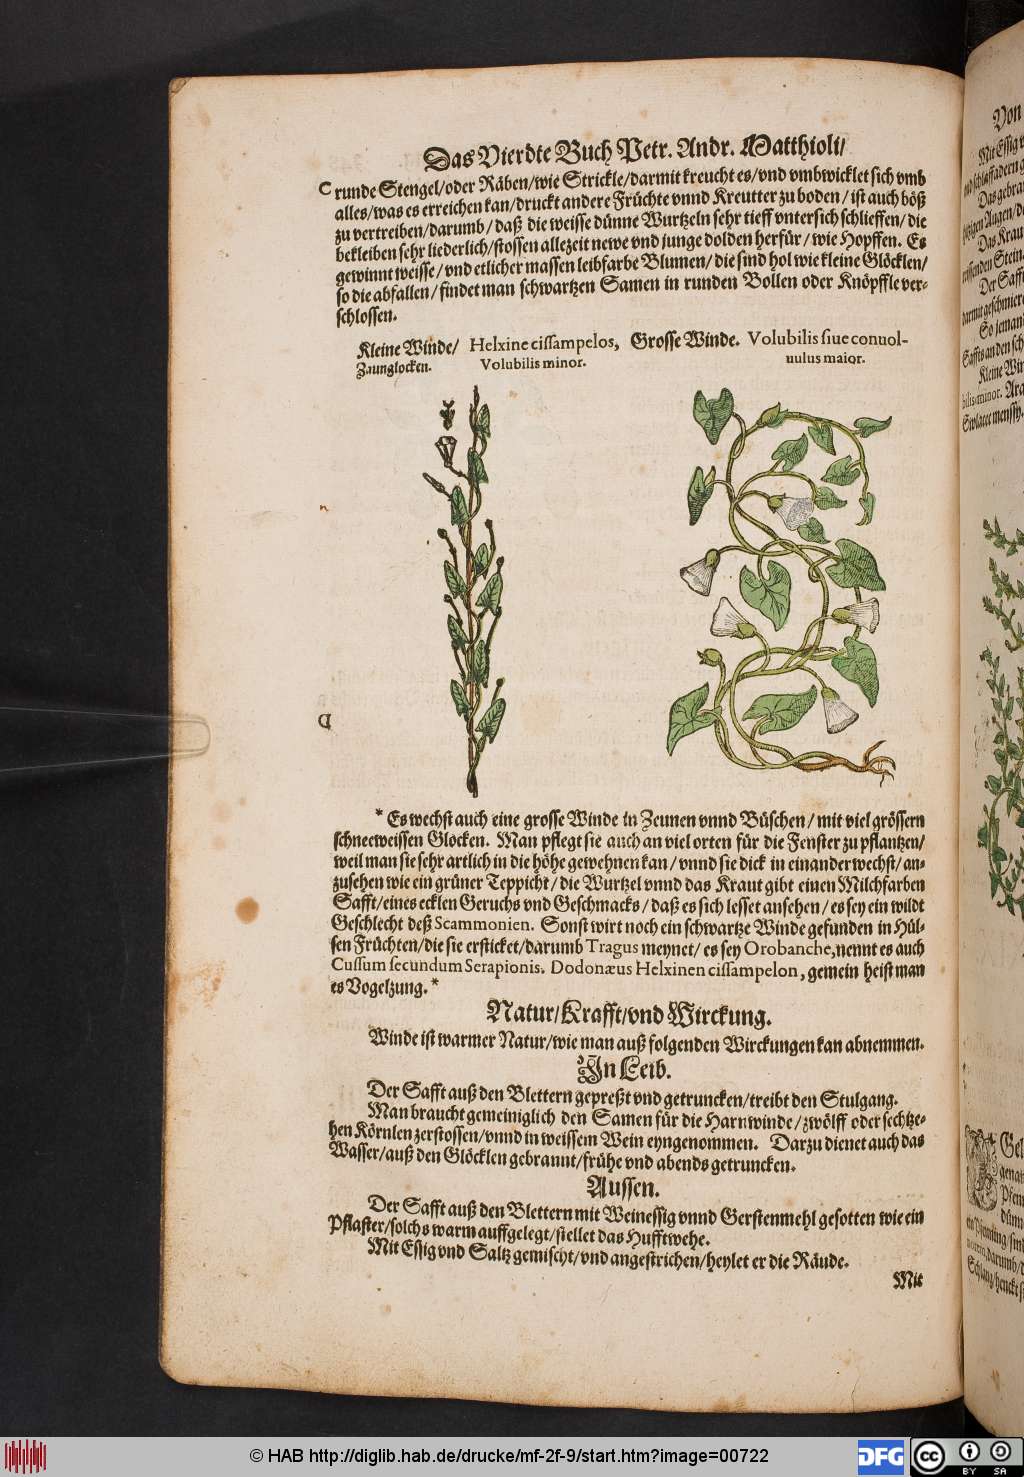 Das Vierdte Buch Petr. Andr. Matthioli/
C runde Stengel/oder Räben/wie Strickle/darmit kreucht es/vnd vmbwicklet sich vmb
alles/was es erreichen kan/druckt andere Früchte vnnd Kreutter zu boden/ist auch böß
zu vertreiben/darumb/daß die weisse dünne Wurtzeln sehr tieff vntersich schlieffen/die
bekleiben sehr liederlich/stossen allezeit newe vnd junge dolden herfür/wie Hopffen. Es
gewinnt weisse/vnd etlicher massen leibfarbe Blumen/die sind hol wie kleine Glöcklen/
so die abfallen/findet man schwartzen Samen in runden Bollen oder Knöpffle ver-
schlossen.
Kleine Winde/ Helxine cissampelos,
Zaunglocken. Volubilis minor.
Grosse Winde. Volubilis siue conuol-
uulus maior.
D
* Es wechst auch eine grosse Winde in Zeunen vnnd Büschen/mit viel grössern
schneeweissen Glocken. Man pflegt sie auch an viel orten für die Fenster zu pflantzen/
weil man sie sehr artlich in die höhe gewehnen kan/vnnd sie dick in einander wechst/an-
zusehen wie ein grüner Teppicht/die Wurtzel vnnd das Kraut gibt einen Milchfarben
Safft/eines ecklen Geruchs vnd Geschmacks/daß es sich lesset ansehen/es sey ein wildt
Geschlecht deß Scammonien. Sonst wirt noch ein schwartze Winde gefunden in Hül-
sen Früchten/die sie ersticket/darumb Tragus meynet/es sey Orobanche, nennt es auch
Cussum secundum Serapionis. Dodonæus Helxinen cissampelon, gemein heist man
es Vogelzung. *
Natur/Krafft/vnd Wirckung.
Winde ist warmer Natur/wie man auß folgenden Wirckungen kan abnemmen.
In Leib.
Der Safft auß den Blettern gepreßt vnd getruncken/treibt den Stulgang.
Man braucht gemeiniglich den Samen für die Harnwinde/zwölff oder sechtze-
hen Körnlen zerstossen/vnnd in weissem Wein eyngenommen. Darzu dienet auch das
Wasser/auß den Glöcklen gebrannt/frühe vnd abends getruncken.
Aussen.
Der Safft auß den Blettern mit Weinessig vnnd Gerstenmehl gesotten wie ein
Pflaster/solchs warm auffgelegt/stellet das Hufftwehe.
Mit Essig vnd Saltz gemischt/vnd angestrichen/heylet er die Räude.
Mit
Von
Mit Essig
Das gebra
Das Krau
Der Safft
So jeman
Kleine Win
© HAB http://diglib.hab.de/drucke/mf-2f-9/start.htm?image=00722
DFG
cc BY SA